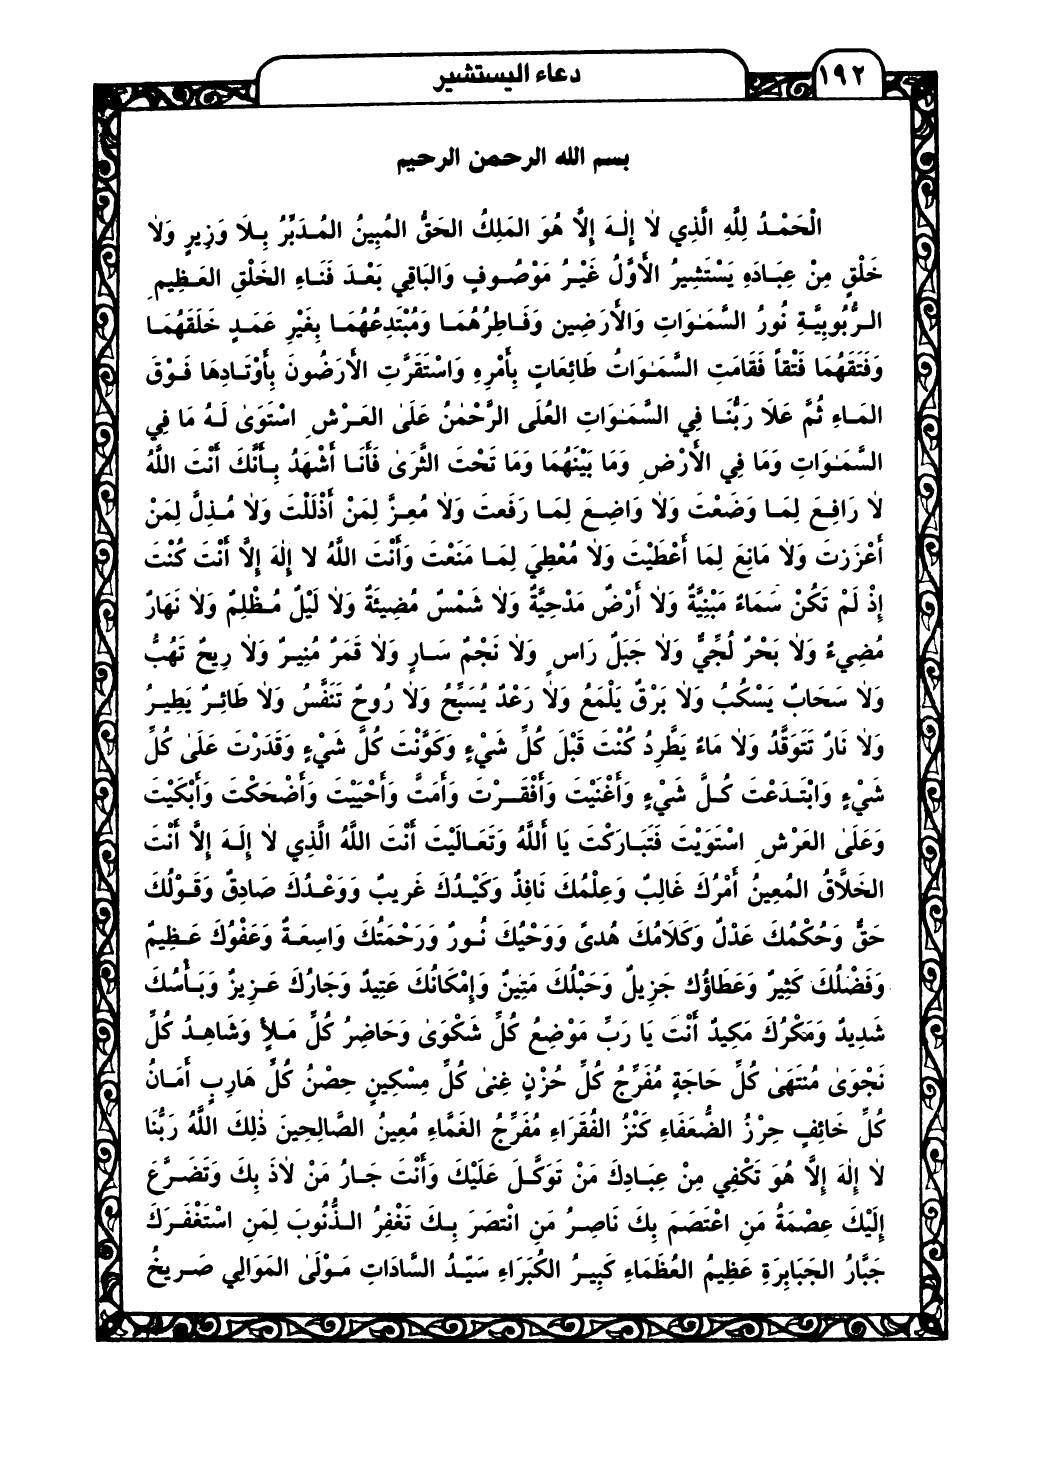 ١٩٢
دعاء اليستشير
بسم الله الرحمن الرحيم
الْحَمْدُ لِلَّهِ الَّذِي لاَ إِلٰهَ إِلاَّ هُوَ المَلِكُ الحَقُّ المُبِينُ المُدَبِّرُ بِلاَ وَزِيرٍ وَلاَ
خَلْقٍ مِنْ عِبَادَهِ يَسْتَشِيرُ الأَوَّلُ غَيْرُ مَوْصُوفٍ وَالبَاقِي بَعْدَ فَنَاءِ الخَلْقِ العَظِيمِ
الرُّبُوبِيَّةِ نُورُ السَّمٰوَاتِ وَالأَرَضِين وَفَاطِرُهُمَا وَمُبْتَدِعُهُمَا بِغَيْرِ عَمَدٍ خَلَقَهُمَا
وَفَتَقَهُمَا فَتْقاً فَقَامَتِ السَّمٰوَاتُ طَائِعَاتٍ بِأَمْرِهِ وَاسْتَقَرَّتِ الأَرَضُونَ بِأَوْتَادِهَا فَوْقَ
المَاءِ ثُمَّ عَلَا رَبُّنَا فِي السَّمٰوَاتِ العُلَى الرَّحْمٰنُ عَلَىٰ العَرْشِ اسْتَوَىٰ لَهُ مَا فِي
السَّمٰوَاتِ وَمَا فِي الأَرْضِ وَمَا بَيْنَهُمَا وَمَا تَحْتَ الثَّرَىٰ فَأَنَا أَشْهَدُ بِأَنَّكَ أَنْتَ اللَّهُ
لاَ رَافِعَ لِمَا وَضَعْتَ وَلاَ وَاضِعَ لِمَا رَفَعتَ وَلاَ مُعِزَّ لِمَنْ أَذْلَلْتَ وَلاَ مُذِلَّ لِمَنْ
أَعْزَزتَ وَلاَ مَانِعَ لِمَا أَعْطَيْتَ وَلاَ مُعْطِيَ لِمَا مَنَعْتَ وَأَنْتَ اللَّهُ لا إِلٰهَ إِلاَّ أَنْتَ كُنْتَ
إِذْ لَمْ تَكُنْ سَمَاءٌ مَبْنِيَّةٌ وَلاَ أَرْضٌ مَدْحِيَّةٌ وَلاَ شَمْسٌ مُضِيئَةٌ وَلاَ لَيْلٌ مُظْلِمٌ وَلاَ نَهَارٌ
مُضِيءٌ وَلاَ بَحْرٌ لُجِّيٌّ وَلاَ جَبَلٌ رَاسٍ وَلاَ نَجْمٌ سَارٍ وَلاَ قَمَرٌ مُنِيرٌ وَلاَ رِيحٌ تَهُبُّ
وَلاَ سَحَابٌ يَسْكُبُ وَلاَ بَرْقٌ يَلْمَعُ وَلاَ رَعْدٌ يُسَبِّحُ وَلاَ رُوحٌ تَنَفَّسُ وَلاَ طَائِرٌ يَطِيرُ
وَلاَ نَارٌ تَتَوَقَّدُ وَلاَ مَاءٌ يَطَّرِدُ كُنْتَ قَبْلَ كُلِّ شَيْءٍ وَكَوَّنْتَ كُلَّ شَيْءٍ وَقَدَرْتَ عَلَىٰ كُلِّ
شَيْءٍ وَابْتَدَعْتَ كُلَّ شَيْءٍ وَأَغْنَيْتَ وَأَفْقَرْتَ وَأَمَتَّ وَأَحْيَيْتَ وَأَضْحَكْتَ وَأَبْكَيْتَ
وَعَلَىٰ العَرْشِ اسْتَوَيْتَ فَتَبَارَكْتَ يَا أَللَّهُ وَتَعَالَيْتَ أَنْتَ اللَّهُ الَّذِي لاَ إِلَهَ إِلاَّ أَنْتَ
الخَلاَّقُ المُعِينُ أَمْرُكَ غَالِبٌ وَعِلْمُكَ نَافِذٌ وَكَيْدُكَ غَرِيبٌ وَوَعْدُكَ صَادِقٌ وَقَوْلُكَ
حَقٌّ وَحُكْمُكَ عَدْلٌ وَكَلَامُكَ هُدىً وَوَحْيُكَ نُورٌ وَرَحْمَتُكَ وَاسِعَةٌ وَعَفْوُكَ عَظِيمٌ
وَفَضْلُكَ كَثِيرٌ وَعَطَاؤُكَ جَزِيلٌ وَحَبْلُكَ مَتِينٌ وَإِمْكَانُكَ عَتِيدٌ وَجَارُكَ عَزِيزٌ وَبَأْسُكَ
شَدِيدٌ وَمَكْرُكَ مَكِيدٌ أَنْتَ يَا رَبِّ مَوْضِعُ كُلِّ شَكْوَىٰ وَحَاضِرُ كُلِّ مَلَأٍ وَشَاهِدُ كُلِّ
نَجْوَىٰ مُنتَهَىٰ كُلِّ حَاجَةٍ مُفَرِّجُ كُلِّ حُزْنٍ غِنىٰ كُلِّ مِسْكِينٍ حِصْنُ كُلِّ هَارِبٍ أَمَانُ
كُلِّ خَائِفٍ حِرْزُ الضُّعَفَاءِ كَنْزُ الفُقَرَاءِ مُفَرِّجُ الغَمَّاءِ مُعِينُ الصَّالِحِينَ ذٰلِكَ اللَّهُ رَبُّنَا
لاَ إِلٰهَ إِلاَّ هُوَ تَكْفِي مِنْ عِبَادِكَ مَنْ تَوَكَّلَ عَلَيْكَ وَأَنْتَ جَارُ مَنْ لاَذَ بِكَ وَتَضَرَّعَ
إِلَيْكَ عِصْمَةُ مَنِ اعْتَصَمَ بِكَ نَاصِرُ مَنِ انْتصَرَ بِكَ تَغْفِرُ الذُّنُوبَ لِمَنِ اسْتَغْفَرَكَ
جَبَّارُ الجَبَابِرَةِ عَظِيمُ العُظَمَاءِ كَبِيرُ الكُبَرَاءِ سَيِّدُ السَّادَاتِ مَوْلَىٰ المَوَالِي صَرِيخُ